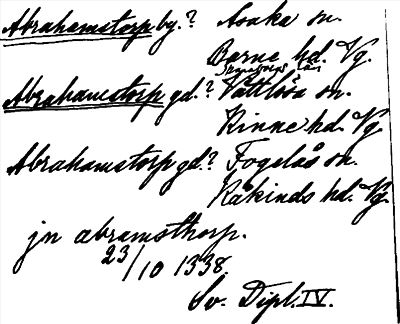 Abrahamstorp by.? Asaka sn.
Barne hd. Vg.
Abrahamstorp gd.? Vättlösa sn.
Kinne hd. Vg.
Abrahamstorp gd.? Fogelås sn.
Kåkinds hd. Vg.
jn abramsthorp.
23/10 1338.
Sv. Dipl. IV.